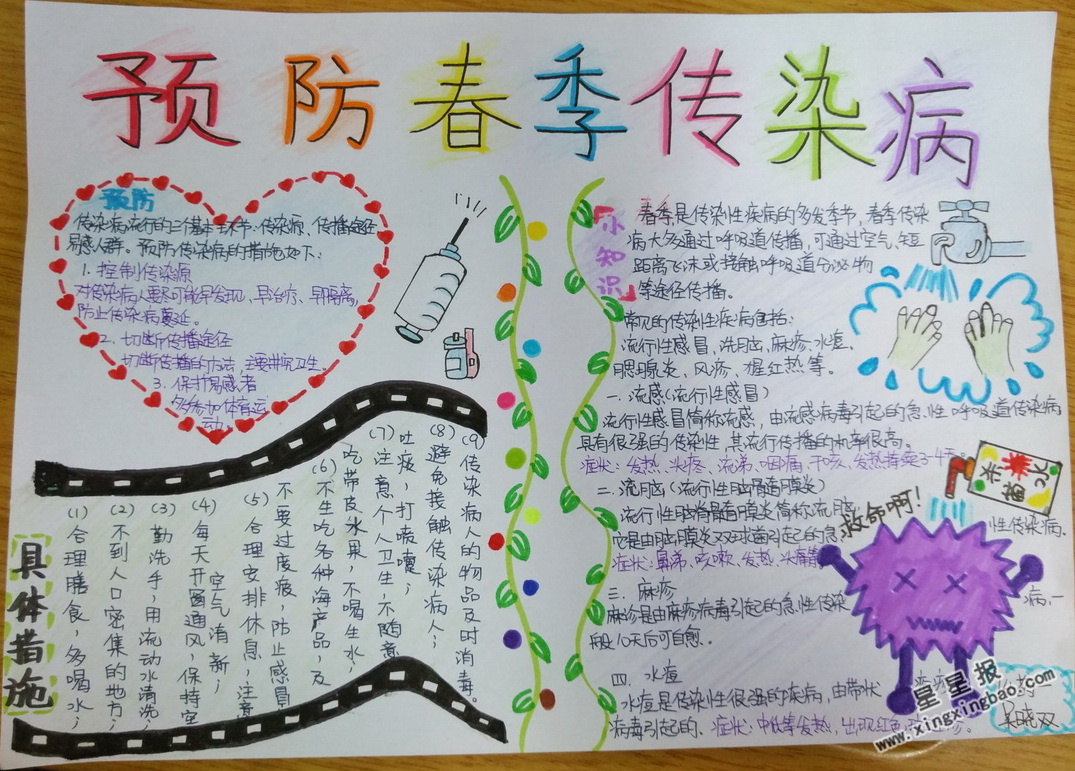 预防春季传染病
预防
传染病流行的三个基本环节:传染源、传播途径
易感人群。预防传染病的措施如下:
1. 控制传染源
对传染病人要尽可能早发现、早治疗、早隔离,
防止传染病蔓延。
2. 切断传播途径
切断传播的方法,主要讲究卫生。
3. 保护易感者
多参加体育运
动。
具体措施
(1)合理膳食,多喝水;
(2)不到人口密集的地方;
(3)勤洗手,用流动水清洗;
(4)每天开窗通风,保持室
空气清新;
(5)合理安排休息,注意
不要过度疲,防止感冒
(6)不生吃各种海产品,及
吃带皮水果,不喝生水;
(7)注意个人卫生,不随意
吐痰,打喷嚏;
(8)避免接触传染病人;
(9)传染病人的物品及时消毒。
小知识
春季是传染性疾病的多发季节,春季传染
病大多通过呼吸道传播,可通过空气、短
距离飞沫或接触呼吸道分泌物
等途径传播。
常见的传染性疾病包括:
流行性感冒、流脑、麻疹、水痘、
腮腺炎、风疹、猩红热等。
一. 流感(流行性感冒)
流行性感冒简称流感,由流感病毒引起的急性呼吸道传染病
具有很强的传染性,其流行传播的
症状:发热、头疼、流涕、咽痛、干咳,发热持续3-4天。
二. 流脑(流行性脑脊髓膜炎)
流行性脑脊髓膜炎简称流脑,
它是由脑膜炎双球菌引起的急性传染病.
症状:鼻涕、咳嗽、发热、头痛等
三. 麻疹
麻疹是由麻疹病毒引起的急性传染病,一
般10天后可自愈.
四. 水痘
水痘是传染性很强的疾病,由带状疱疹
病毒引起的. 症状:中低等发热,出现红色
杀菌水
救命啊!
吴晓双
星星报
www.xingxingbao.com